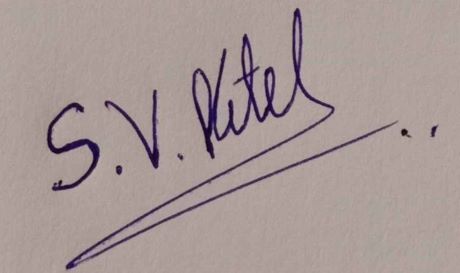 S.V. Patel